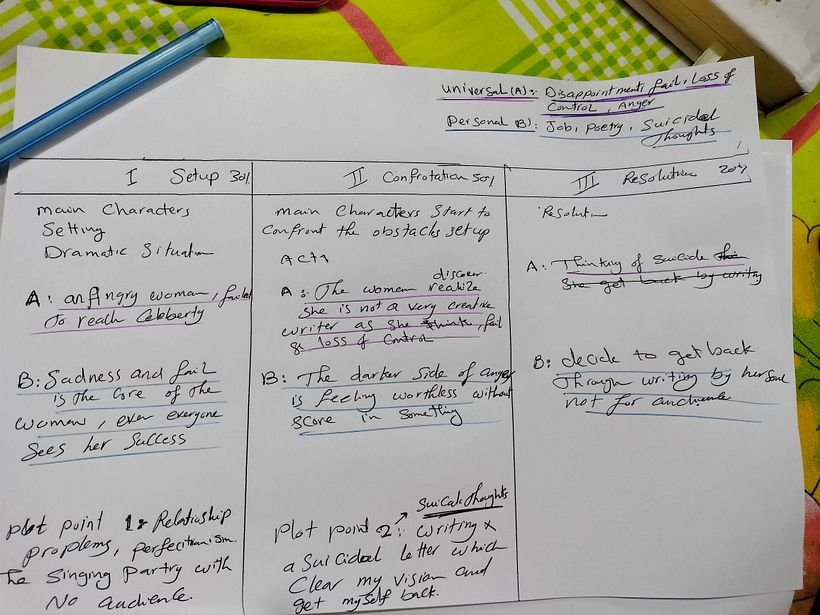 universal (A): Disappointment, fail, Loss of
Control, Anger
Personal (B): Job, Poetry, Suicidal
thoughts
I Setup 30%
main Characters
Setting
Dramatic Situation
A: an Angry woman, failed
to reach Celeberty
B: Sadness and fail
is the Core of the
women, even everyone
Sees her Success
plot point 1: Relatioship
proplems, perfectionism.
The Singing Partry with
No audience.
II Confrotation 50%
main Characters Start to
Confront the obstacls setup
ACTA
discover
A: The women realize
she is not a very creative
writer as she think, fail
& loss of Control
B: The darker side of anger
is feeling worthless without
score in something
Suicide thoughts
plot point 2: writing
a Suicidal letter which
Clear my vision and
get myself back.
III Resolution 20%
Resolution
A: Thinking of suicide the
She get back by writing
B: decide to get back
Through writing by her soul
not for audience